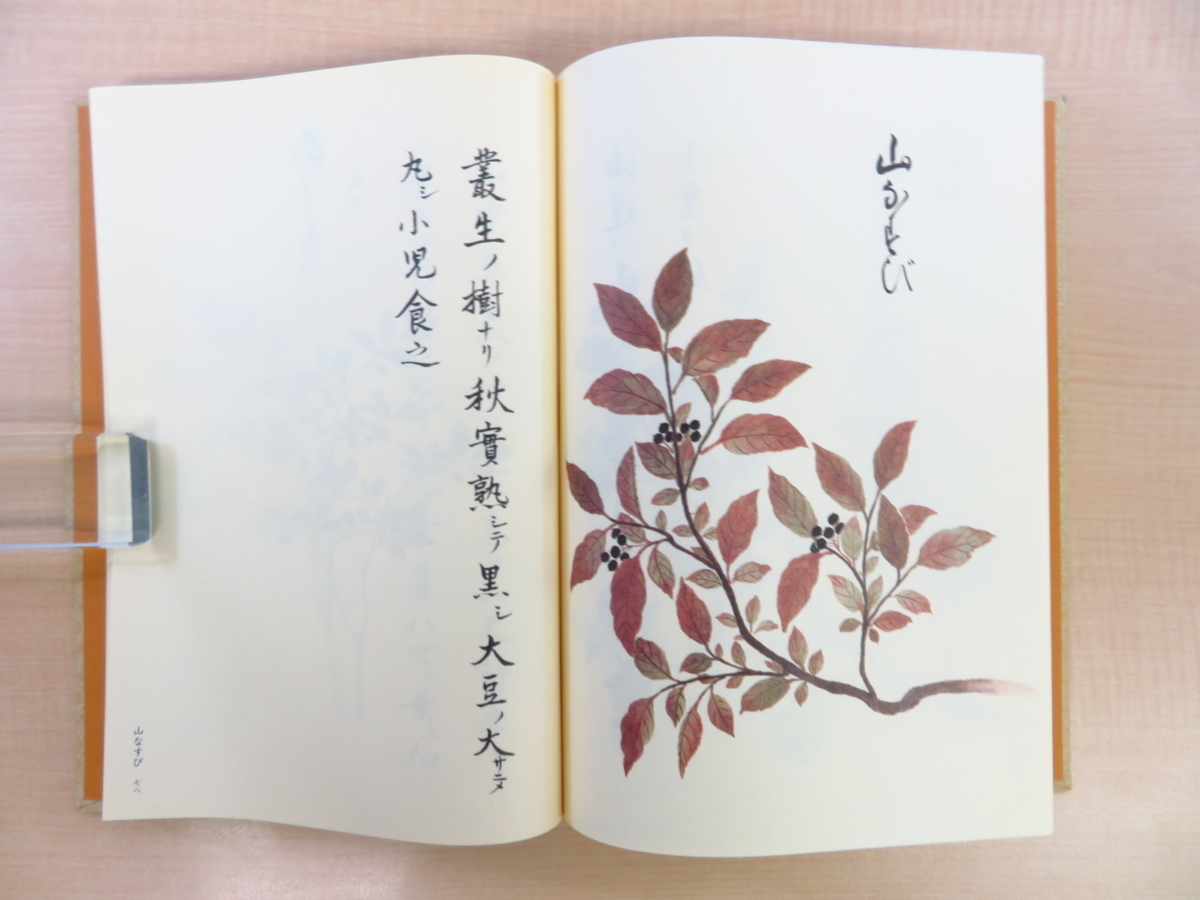 山なすび
叢生ノ樹ナリ秋實熟シテ黒シ大豆ノ大サニ〆
丸シ小児食之
山なすび 七八